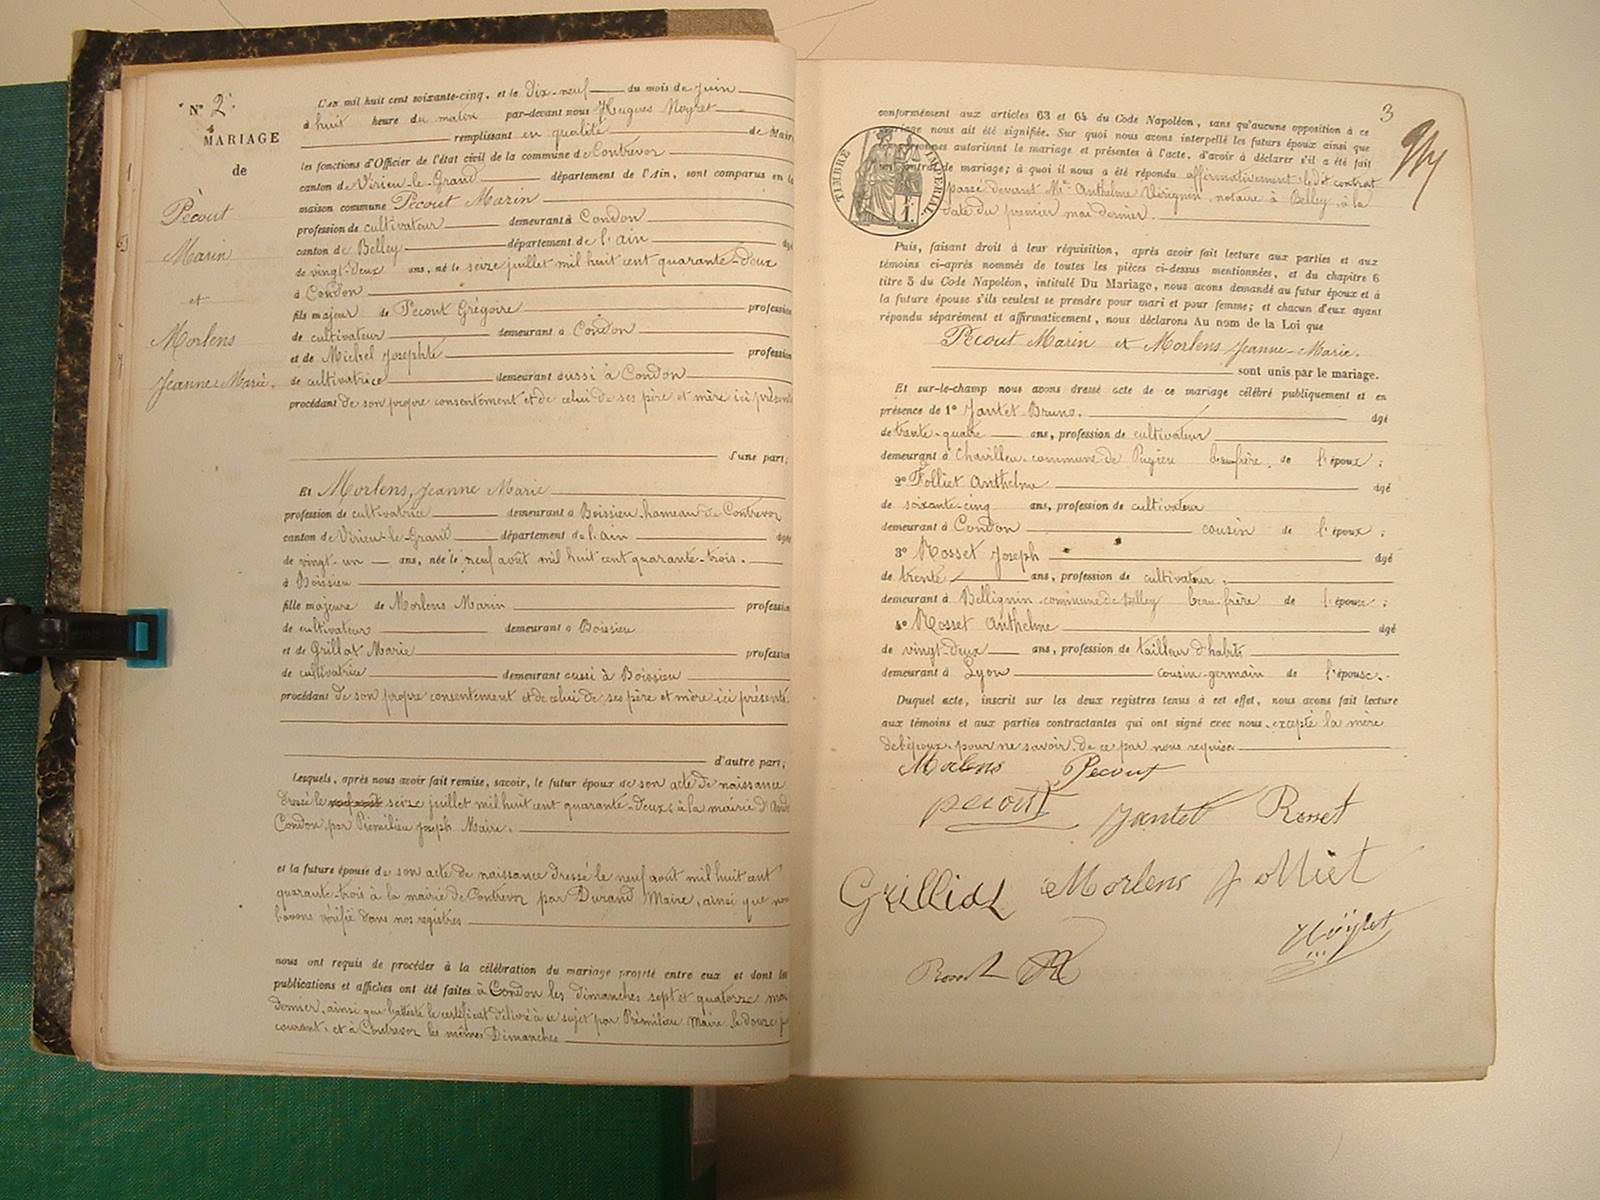 N° 2
MARIAGE
de
Pécout
Marin
et
Morlens
Jeanne-Marie.
L'an mil huit cent soixante-cinq, et le Dix-neuf du mois de juin
à huit heure du matin par-devant nous Hugues Noyret
remplissant en qualité de Maire
les fonctions d'Officier de l'état civil de la commune de Contrevoz
canton de Virieu-le-Grand département de l'Ain, sont comparus en la
maison commune Pécout Marin
profession de cultivateur demeurant à Condon
canton de Belley département de l'ain âgé
de vingt-deux ans, né le seize juillet mil huit cent quarante-deux
à Condon
fils majeur de Pécout Grégoire profession
de cultivateur demeurant à Condon
et de Michel Josephte profession
de cultivatrice demeurant aussi à Condon
procédant de son propre consentement et de celui de ses père et mère ici présents
d'une part;
Et Morlens, Jeanne Marie
profession de cultivatrice demeurant à Boissieu hameau de Contrevoz
canton de Virieu-le-Grand département de l'ain âgée
de vingt-un ans, née le neuf août mil huit cent quarante-trois.
à Boissieu
fille majeure de Morlens Marin profession
de cultivateur demeurant à Boissieu
et de Grillat Marie profession
de cultivatrice demeurant aussi à Boissieu
procédant de son propre consentement et de celui de ses père et mère ici présents.
d'autre part;
Lesquels, après nous avoir fait remise, savoir, le futur époux de son acte de naissance
dressé le seize juillet mil huit cent quarante-deux, à la mairie d'
Condon, par Prémilieu Joseph Maire.
et la future épouse de son acte de naissance dressé le neuf août mil huit cent
quarante-trois à la mairie de Contrevoz par Durand Maire, ainsi que nous
l'avons vérifié dans nos registres
nous ont requis de procéder à la célébration du mariage projeté entre eux et dont les
publications et affiches ont été faites à Condon les dimanches sept et quatorze mai
dernier, ainsi que l'atteste le certificat délivré à ce sujet par Prémilieu Maire le douze
courant, et à Contrevoz les mêmes Dimanches
3
TIMBRE IMPERIAL
conformément aux articles 63 et 64 du Code Napoléon, sans qu'aucune opposition à ce
mariage nous ait été signifiée. Sur quoi nous avons interpellé les futurs époux ainsi que
personnes autorisent le mariage et présentes à l'acte, d'avoir à déclarer s'il a été fait
contrat de mariage; à quoi il nous a été répondu affirmativement, le dit contrat
passé devant Me Anthelme Vérignin, notaire à Belley, à la
date du premier mai dernier.
Puis, faisant droit à leur réquisition, après avoir fait lecture aux parties et aux
témoins ci-après nommés de toutes les pièces ci-dessus mentionnées, et du chapitre 6
titre 5 du Code Napoléon, intitulé Du Mariage, nous avons demandé au futur époux et à
la future épouse s'ils veulent se prendre pour mari et pour femme; et chacun d'eux ayant
répondu séparément et affirmativement, nous déclarons Au nom de la Loi que
Pécout Marin et Morlens Jeanne-Marie.
sont unis par le mariage.
Et sur-le-champ nous avons dressé acte de ce mariage célébré publiquement et en
présence de 1° Jantet Bruno. âgé
de trente-quatre ans, profession de cultivateur
demeurant à Chavilleu commune de Pugieu beau-frère de l'époux;
2° Folliet Anthelme âgé
de soixante-cinq ans, profession de cultivateur
demeurant à Condon cousin de l'époux;
3° Rosset Joseph âgé
de trente ans, profession de cultivateur;
demeurant à Bellignin commune de Belley beau-frère de l'époux;
4° Rosset Anthelme âgé
de vingt-deux ans, profession de tailleur d'habits
demeurant à Lyon cousin germain de l'épouse.
Duquel acte, inscrit sur les deux registres tenus à cet effet, nous avons fait lecture
aux témoins et aux parties contractantes qui ont signé avec nous, excepté la mère
de l'époux, pour ne savoir, de ce par nous requise
Morlens Pecout
pecout Jantet Rosset
Grilliat Morlens folliet
Noyret
Rosset